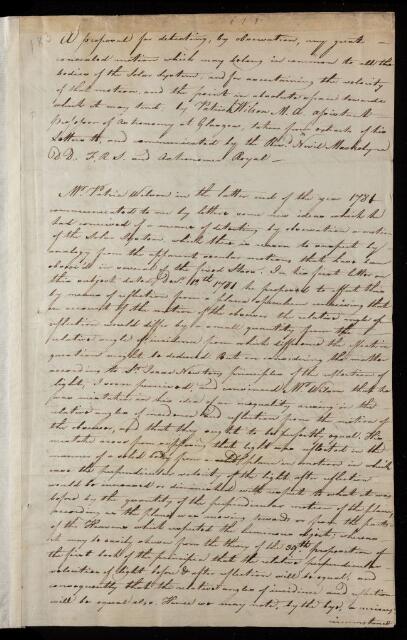 A proposal for detecting, by observation, any great
concealed motion which may belong in common to all the
bodies of the Solar System, and for ascertaining the velocity
of that motion, and the point in absolute space towards
which it may tend. by Patrick Wilson M.A. assistant
Professor of Astronomy at Glasgow, taken from extracts of his
Letters to, and communicated by the Revd. Nevil Maskelyne
D.D. F.R.S. and Astronomer Royal
Mr. Patrick Wilson in the latter end of the year 1781
communicated to me by letters some new ideas which he
had conceived of a means of detecting by observation a motion
of the Solar System which there is reason to suspect by
analogy from the apparent secular motions that have been
observed in several of the fixed Stars. In his first letter on
this subject dated 1781 he proposed to effect this
by means of reflection from a plane speculum conceiving that
on account of the motion of the observer the relative angle of
reflection would differ by a small quantity from the
relative angle of incidence from which difference the effect in
question might be deduced. But on considering the matter
according to Sr. Isaac Newton's principles of the reflection of
light, I soon perceived, and convinced Mr. Wilson that he
was mistaken in his idea of an inequality arising in the
relative angles of incidence and reflection from the motion of
the observer, and that they ought to be perfectly equal. His
mistake arose from supposing that light was reflected in the
manner of a solid body from a plane in motion in which
case the perpendicular velocity of the light after reflection
would be increased or diminished with respect to what it was
before by the quantity of the perpendicular motion of the plane,
according as the plane was moving towards or from the parts
of the Heavens which the luminous object; whereas
it may be easily shewn from the of the 39th proposition of
the first book of the principia that the relative perpendicular
velocities of light before & after reflection will be equal; and
consequently that the relative angles of incidence and reflection
will be equal also. Hence we may note, by the bye, a
circumstance